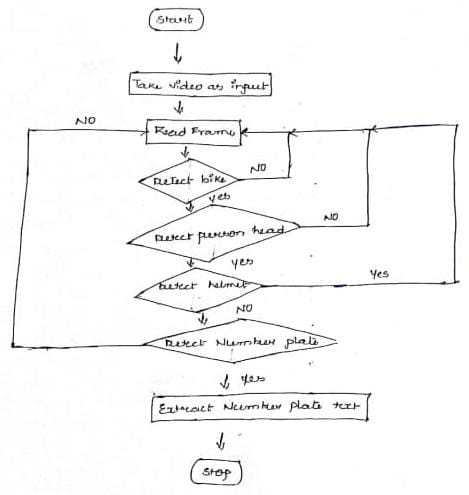 Start
Take video as input
NO
Read Frame
Detect bike
NO
yes
Detect person head
NO
yes
Detect helmet
Yes
NO
Detect Number plate
yes
Extract Number plate text
Stop